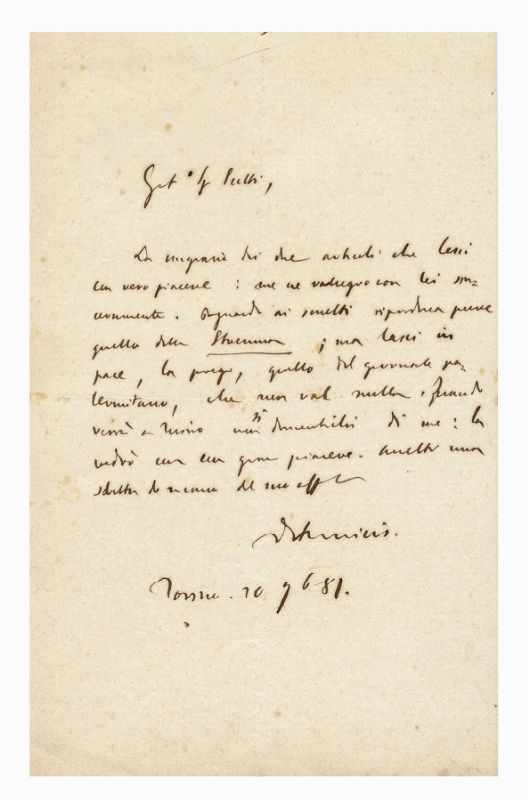 Gent.º Sr Pelli,
La ringrazio dei due articoli che lessi
con vero piacere: me ne rallegro con lei sin-
ceramente. Riguardo ai sonetti riproduca pure
quello della Strenna; ma lasci in
pace, la prego, quello del giornale pa-
lermitano, che non val nulla. Quando
verrà a Torino non si dimentichi di me: la
vedrò con gran piacere. Accetti una
stretta di mano dal suo aff
DeAmicis.
Torino. 20 9b 81.